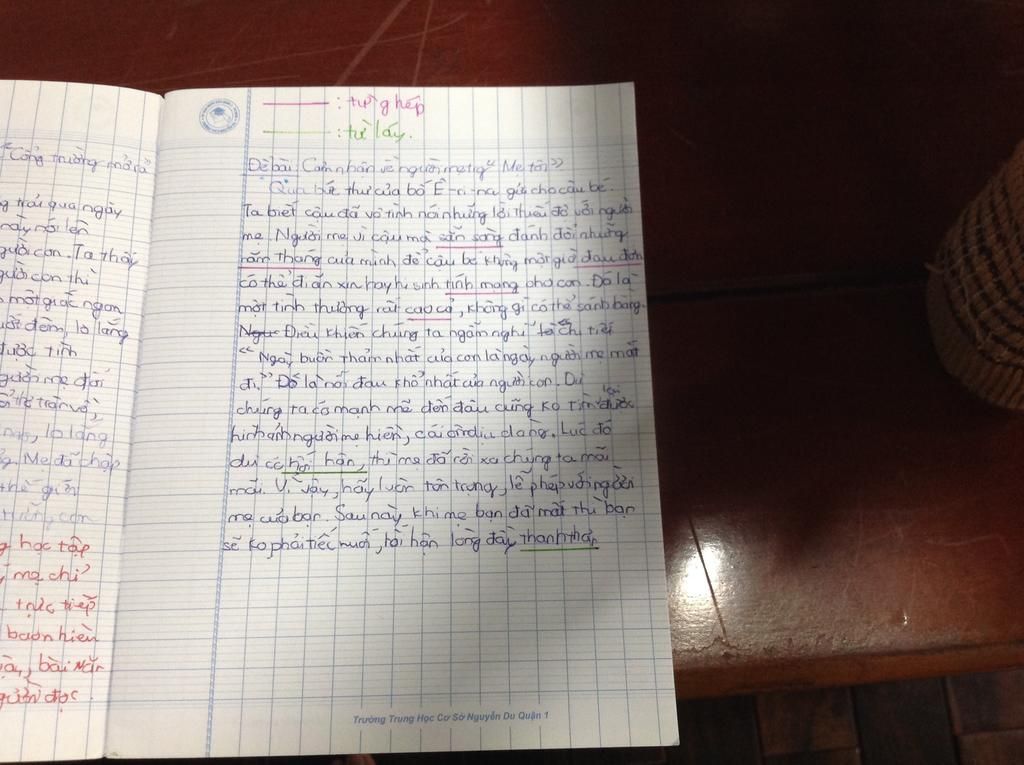 "Cổng trường mở ra"
g trải qua ngày
này nói lên
gười con. Ta thấy
gười con thì
một giấc ngon
ước đêm, lo lắng
được tình
gười mẹ đối
lo lắng
g. Mẹ đã chập
thế giới
con
g học tập
mẹ chỉ
trực tiếp
buồn hiền
bài văn
người đọc.
: từ ghép
: từ láy.
Đề bài: Cảm nhận về người mẹ tg "Mẹ tôi"
Qua bức thư của bố Ê-ri-na gửi cho cậu bé.
Ta biết cậu đã vô tình nói những lời thiếu đô với người
mẹ. Người mẹ vì cậu mà sẵn sàng đánh đổi những
năm tháng của mình để cậu bé không một giờ đau đớn
có thể đi ăn xin hay hi sinh tính mạng cho con. Đó là
một tình thương rất cao cả, không gì có thể sánh bằng.
Điều khiến chúng ta ngẫm nghĩ là chi tiết
"Ngày buồn thảm nhất của con là ngày người mẹ mất
đi." Đó là nỗi đau khổ nhất của người con. Dù
chúng ta có mạnh mẽ đến đâu cũng ko tìm lại được
hình ảnh người mẹ hiền, cái ôm dịu dàng. Lúc đó
dù có hối hận, thì mẹ đã rời xa chúng ta mãi
mãi. Vì vậy, hãy luôn tôn trọng, lễ phép với người
mẹ của bạn. Sau này, khi mẹ bạn đã mất thì bạn
sẽ ko phải tiếc nuối, hối hận lòng đầy thanh thản
Trường Trung Học Cơ Sở Nguyễn Du Quận 1